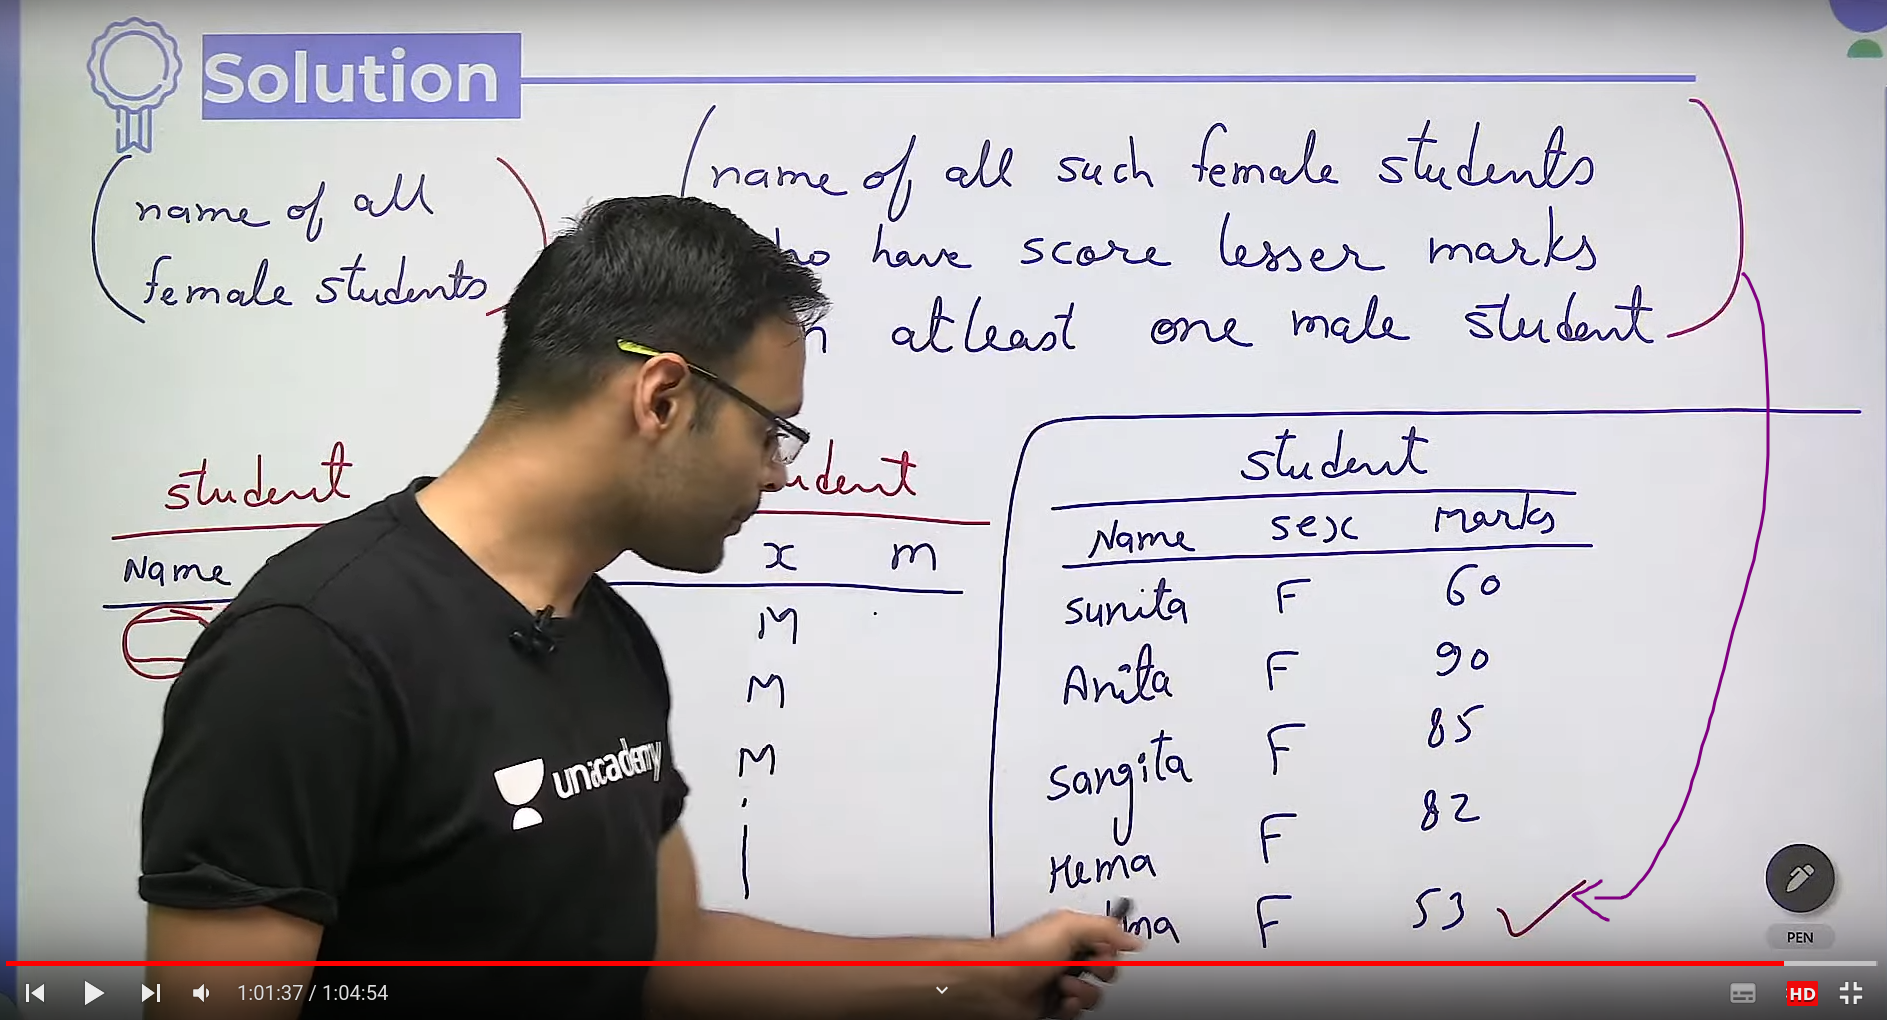 Solution
name of all
female students
name of all such female students
have score lesser marks
atleast one male student
student
Name
x m
M
M
M
student
Name sex Marks
Sunita F 60
Anita F 90
Sangita F 85
Hema F 82
F 53
unacademy
PEN
1:01:37 / 1:04:54
HD